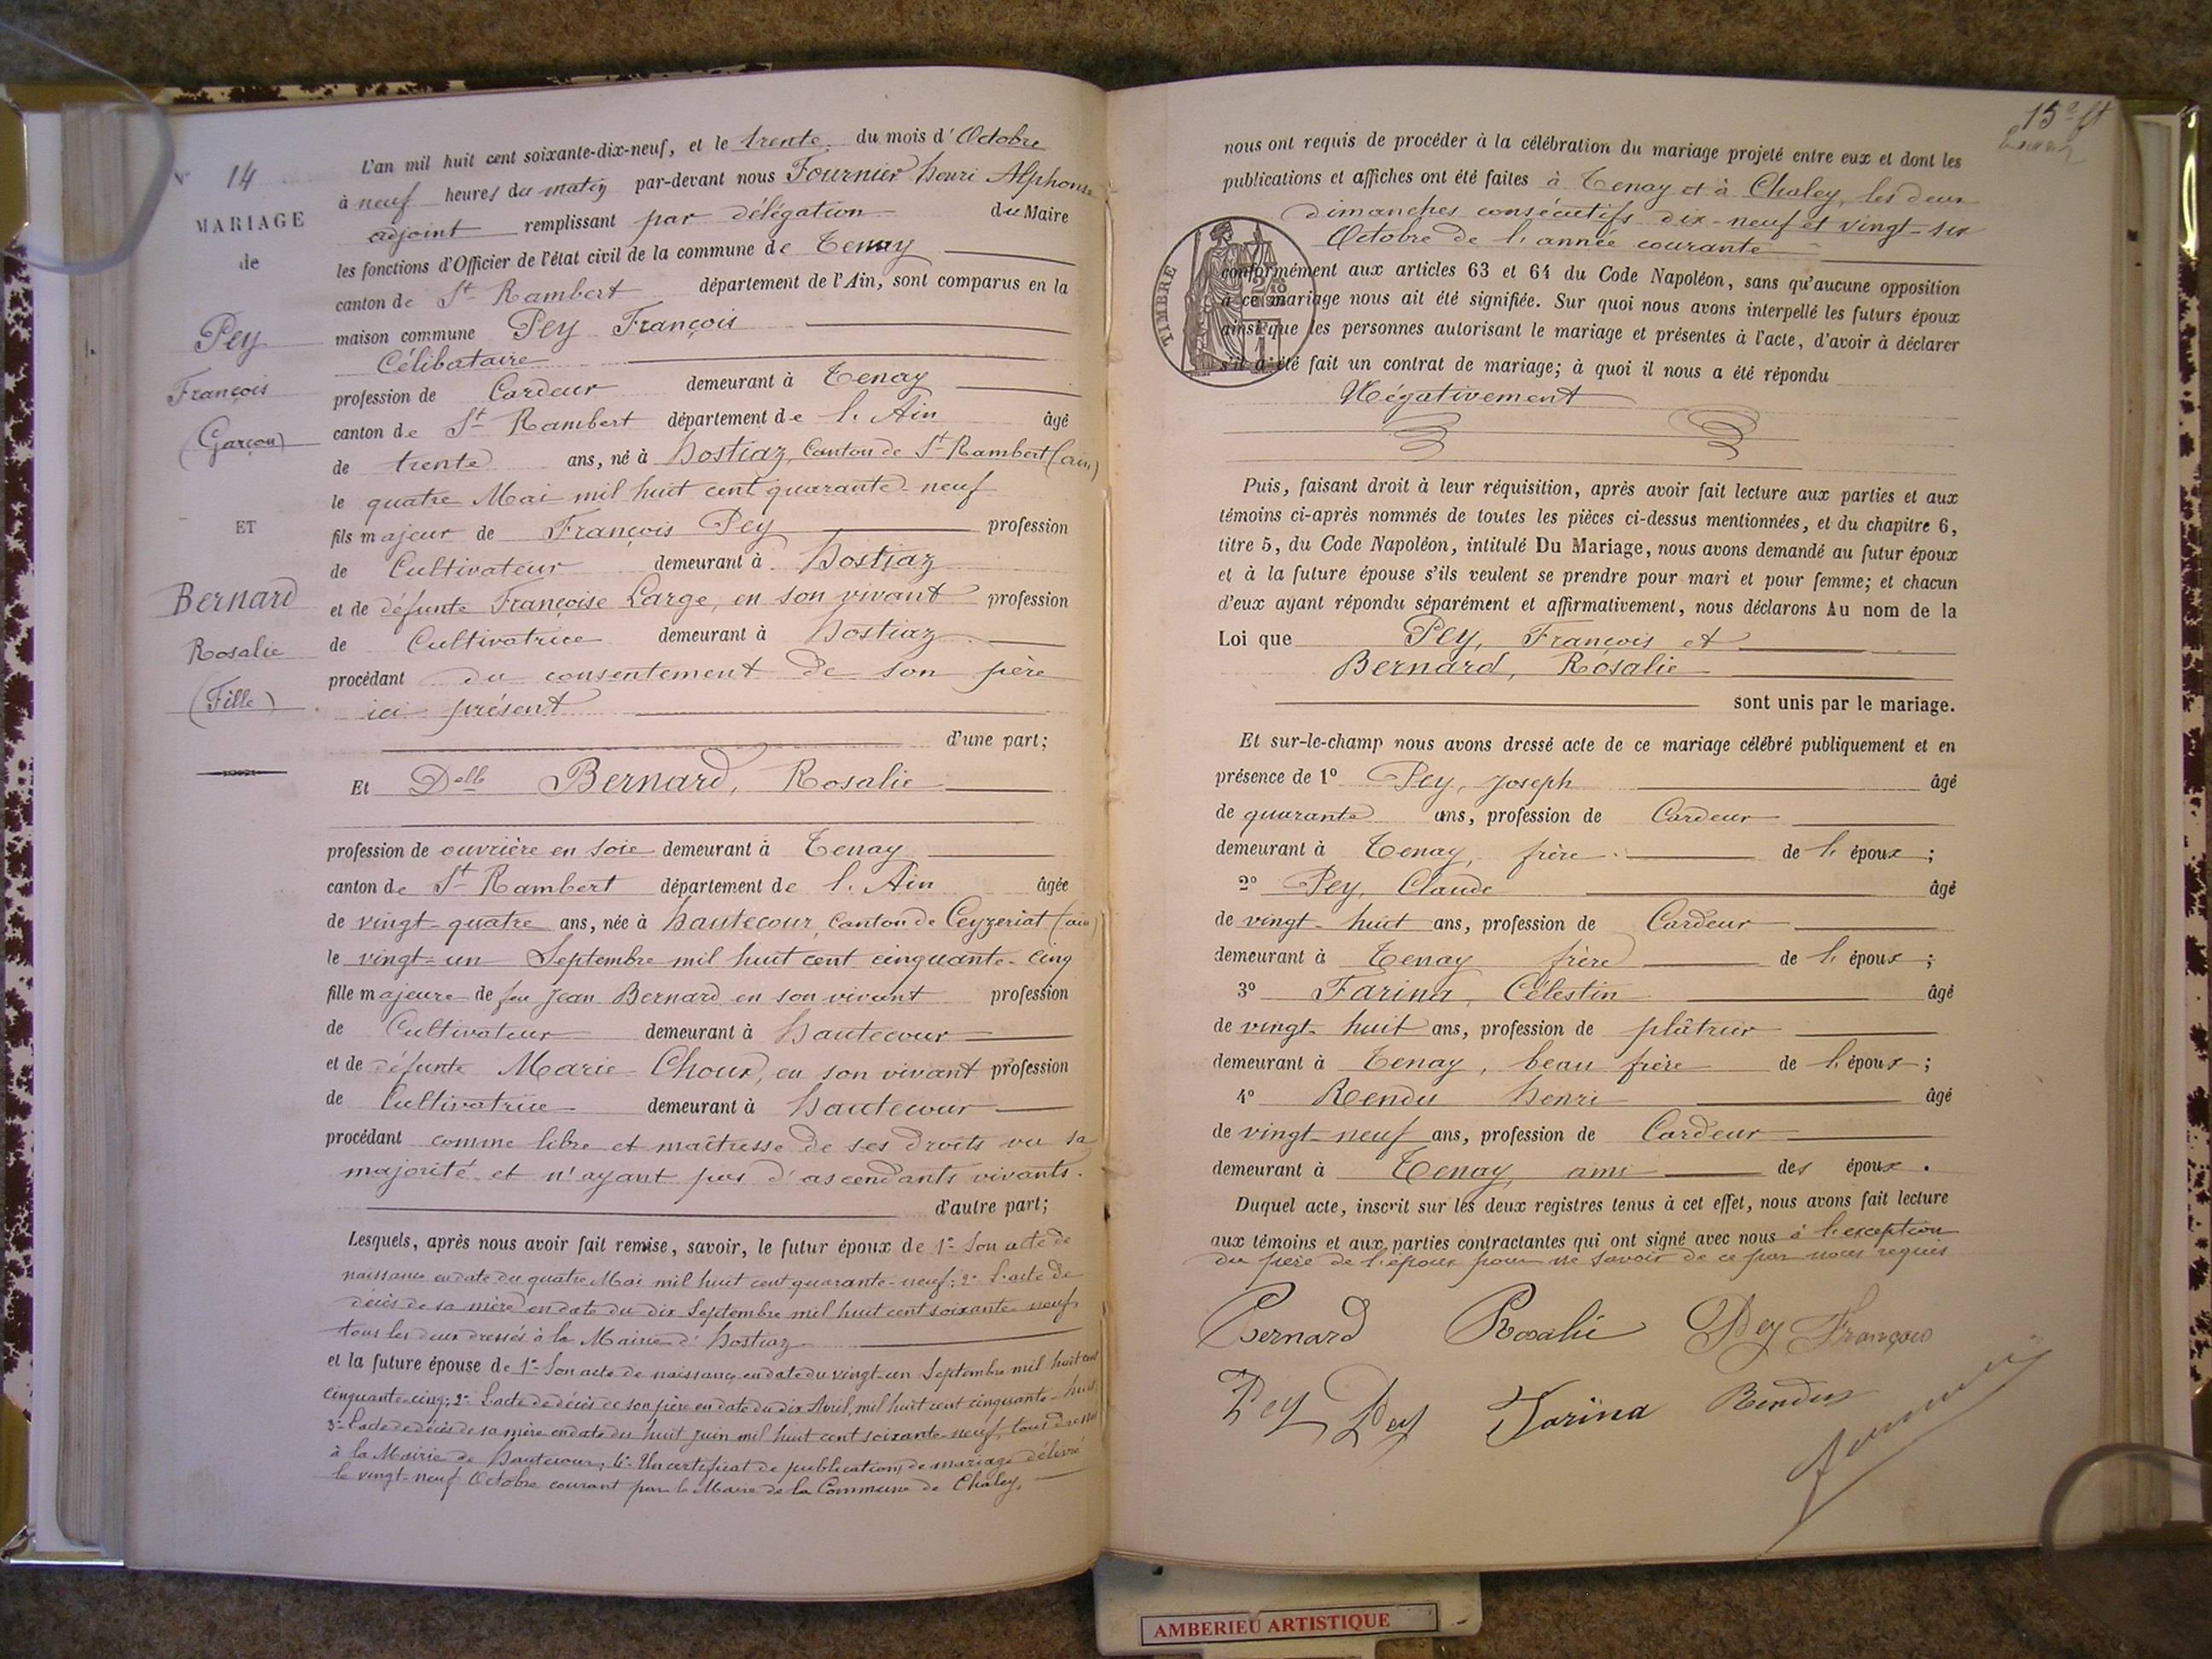 N° 14
MARIAGE
de
Pey
François
(Garçon)
ET
Bernard
Rosalie
(Fille)
L'an mil huit cent soixante-dix-neuf, et le trente du mois d'Octobre
à neuf heures du matin par-devant nous Fournier Henri Alphonse
adjoint remplissant par délégation du Maire
les fonctions d'Officier de l'état civil de la commune de Tenay
canton de St Rambert département de l'Ain, sont comparus en la
maison commune Pey François
Célibataire
profession de Cardeur demeurant à Tenay
canton de St Rambert département de l'Ain âgé
de trente ans, né à Hostiaz, Canton de St Rambert (ain)
le quatre Mai mil huit cent quarante-neuf
fils majeur de François Pey profession
de Cultivateur demeurant à Hostiaz
et de défunte Françoise Large, en son vivant profession
de Cultivatrice demeurant à Hostiaz
procédant du consentement de son père
ici présent
d'une part;
Et Delle Bernard, Rosalie
profession de ouvrière en soie demeurant à Tenay
canton de St Rambert département de l'Ain âgée
de vingt-quatre ans, née à Hautecour, Canton de Ceyzeriat (ain)
le vingt-un Septembre mil huit cent cinquante-cinq
fille majeure de feu Jean Bernard en son vivant profession
de Cultivateur demeurant à Hautecour
et de défunte Marie Choux, en son vivant profession
de Cultivatrice demeurant à Hautecour
procédant comme libre et maîtresse de ses droits vu sa
majorité et n'ayant pas d'ascendants vivants.
d'autre part;
Lesquels, après nous avoir fait remise, savoir, le futur époux de 1° Son acte de
naissance en date du quatre Mai mil huit cent quarante-neuf; 2° L'acte de
décès de sa mère en date du dix Septembre mil huit cent soixante-neuf
tous les deux dressés à la Mairie d'Hostiaz
et la future épouse de 1° Son acte de naissance en date du vingt-un Septembre mil huit cent
cinquante-cinq; 2° L'acte de décès de son père en date du dix Avril, mil huit cent cinquante-huit
3° L'acte de décès de sa mère en date du huit Juin mil huit cent soixante-neuf, tous dressés
à la Mairie de Hautecour; 4° Un certificat de publication de mariage délivré
le vingt-neuf Octobre courant par le Maire de la Commune de Chaley.
15e ft
nous ont requis de procéder à la célébration du mariage projeté entre eux et dont les
publications et affiches ont été faites à Tenay et à Chaley, les deux
dimanches consécutifs dix-neuf et vingt-six
Octobre de l'année courante
TIMBRE
conformément aux articles 63 et 64 du Code Napoléon, sans qu'aucune opposition
à ce mariage nous ait été signifiée. Sur quoi nous avons interpellé les futurs époux
ainsi que les personnes autorisant le mariage et présentes à l'acte, d'avoir à déclarer
s'il a été fait un contrat de mariage; à quoi il nous a été répondu
Négativement
Puis, faisant droit à leur réquisition, après avoir fait lecture aux parties et aux
témoins ci-après nommés de toutes les pièces ci-dessus mentionnées, et du chapitre 6,
titre 5, du Code Napoléon, intitulé Du Mariage, nous avons demandé au futur époux
et à la future épouse s'ils veulent se prendre pour mari et pour femme; et chacun
d'eux ayant répondu séparément et affirmativement, nous déclarons Au nom de la
Loi que Pey, François et
Bernard, Rosalie
sont unis par le mariage.
Et sur-le-champ nous avons dressé acte de ce mariage célébré publiquement et en
présence de 1° Pey, Joseph âgé
de quarante ans, profession de Cardeur
demeurant à Tenay, frère de l'époux;
2° Pey, Claude âgé
de vingt-huit ans, profession de Cardeur
demeurant à Tenay frère de l'époux;
3° Farina, Célestin âgé
de vingt-huit ans, profession de plâtrier
demeurant à Tenay, beau frère de l'époux;
4° Rendu Henri âgé
de vingt-neuf ans, profession de Cardeur
demeurant à Tenay, ami des époux.
Duquel acte, inscrit sur les deux registres tenus à cet effet, nous avons fait lecture
aux témoins et aux parties contractantes qui ont signé avec nous à l'exception
du père de l'époux pour ne savoir de ce par nous requis
Bernard Rosalie Pey François
Pey Pey Farina Rendu
Fournier
AMBERIEU ARTISTIQUE